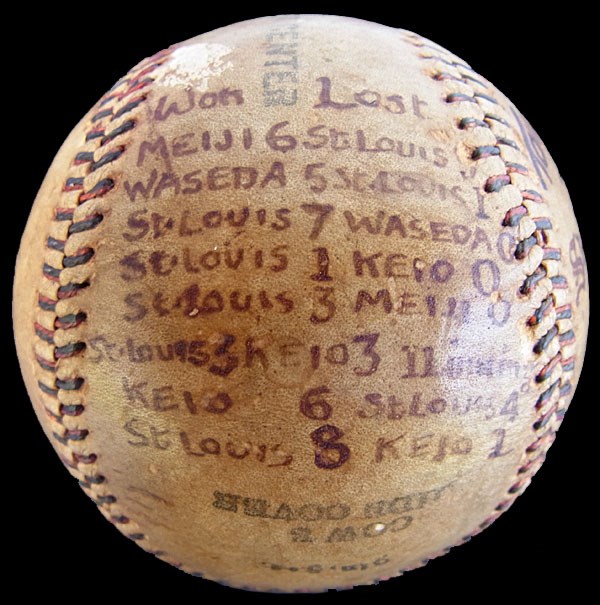 CENTER
Won Lost
MEIJI 6 St. LOUIS
WASEDA 5 St. LOUIS 1
St. LOUIS 7 WASEDA 0
St. LOUIS 1 KEIO 0
St. LOUIS 3 MEIJI 0
St. LOUIS 3 KEIO 3 11
KEIO 6 St. LOUIS 4
St LOUIS 8 KEIO 1
COW